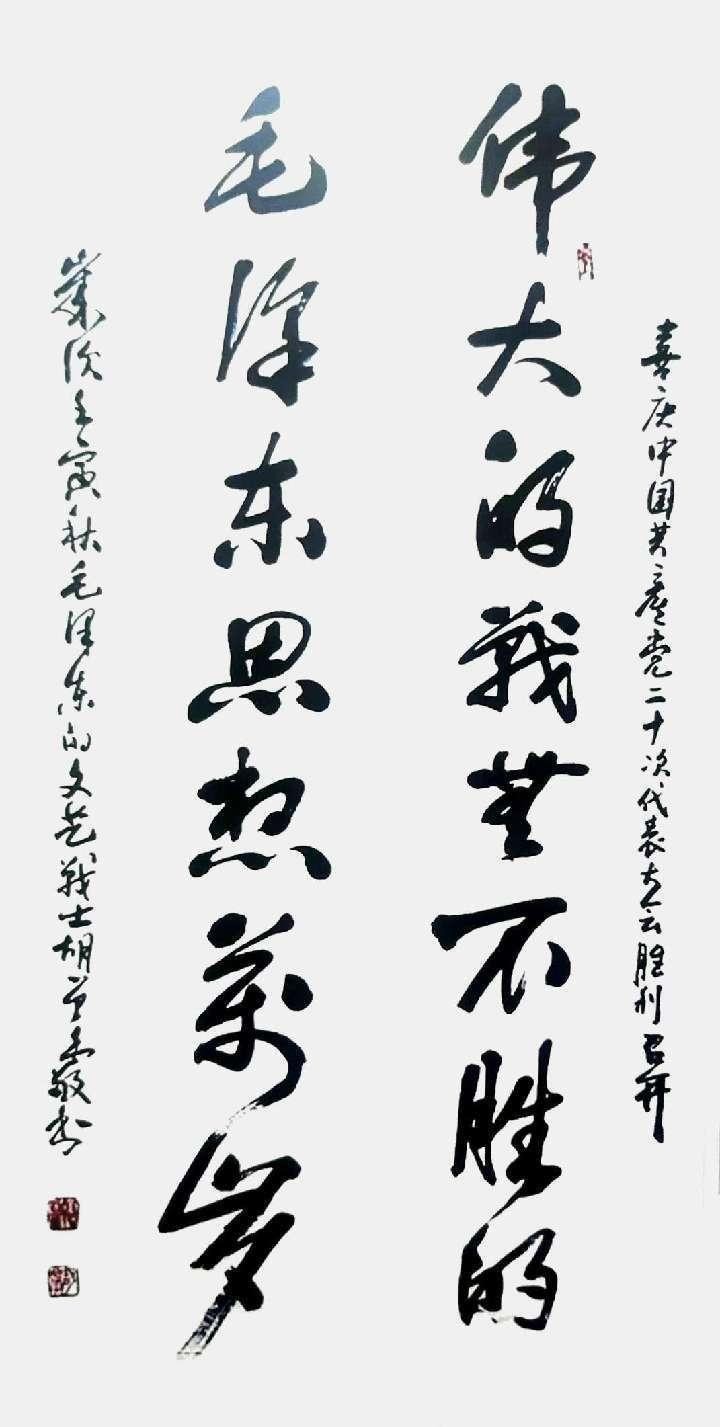 喜庆中国共产党二十次代表大会胜利召开
伟大的战無不胜的
毛泽东思想萬岁
岁次壬寅秋毛泽东的文艺战士胡敬书